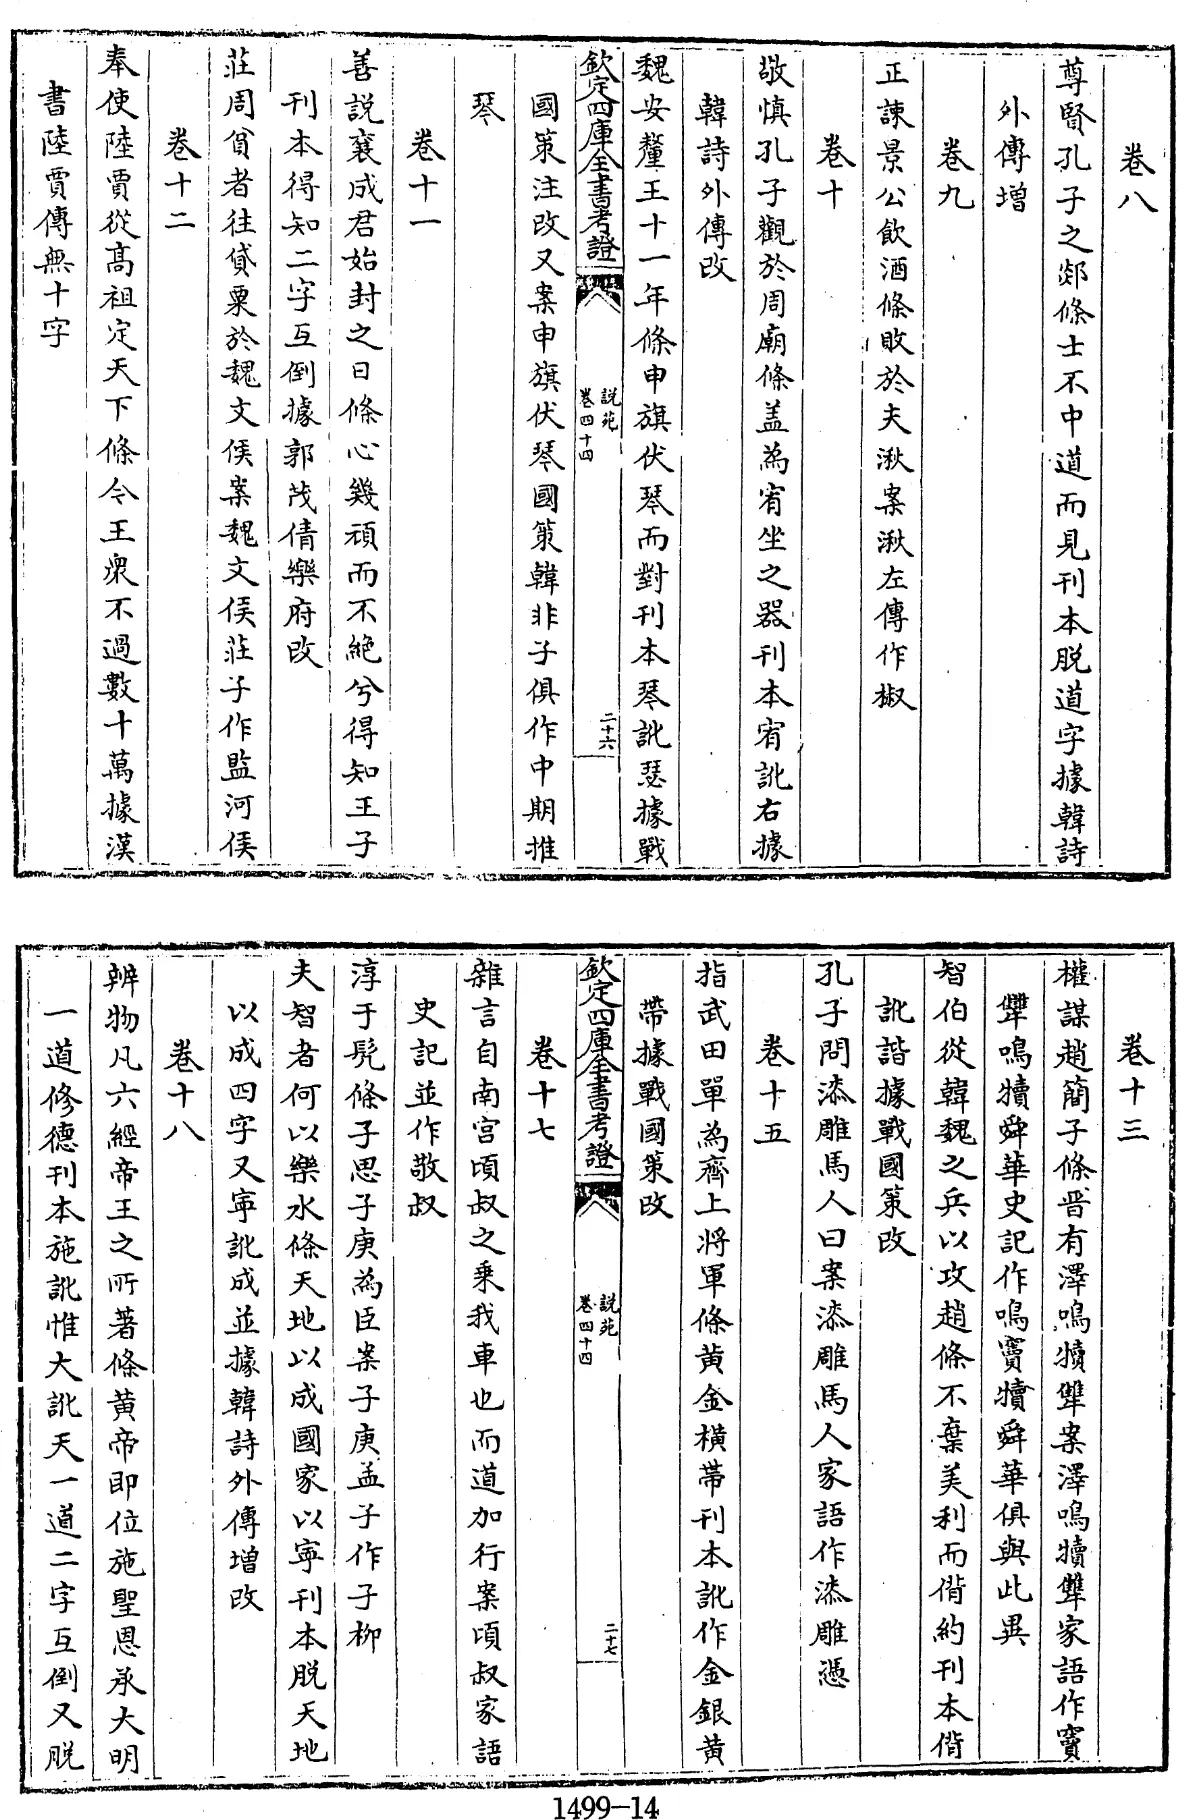 卷八
尊賢孔子之郯條士不中道而見刊本脱道字據韓詩
外傳增
卷九
正諫景公飲酒條敗於夫湫案湫左傳作椒
卷十
敬慎孔子觀於周廟條盖為宥坐之器刊本宥訛右據
韓詩外傳改
魏安釐王十一年條申旗伏琴而對刊本琴訛瑟據戰
欽定四庫全書考證
説苑
卷四十四
二十六
國策注改又案申旗伏琴國策韓非子俱作中期推
琴
卷十一
善説襄成君始封之日條心幾頑而不絶兮得知王子
刊本得知二字互倒據郭茂倩樂府改
莊周貧者往貸粟於魏文侯案魏文侯莊子作監河侯
卷十二
奉使陸賈從高祖定天下條令王衆不過數十萬據漢
書陸賈傳無十字
卷十三
權謀趙簡子條晋有澤鳴犢犨案澤鳴犢犨家語作竇
犨鳴犢舜華史記作鳴竇犢舜華俱與此異
智伯從韓魏之兵以攻趙條不棄美利而偝約刊本偝
訛諧據戰國策改
孔子問漆雕馬人曰案漆雕馬人家語作漆雕憑
卷十五
指武田單為齊上將軍條黄金横帶刊本訛作金銀黄
帶據戰國策改
欽定四庫全書考證
説苑
卷四十四
二十七
卷十七
雜言自南宫頃叔之乗我車也而道加行案頃叔家語
史記並作敬叔
淳于髠條子思子庚為臣案子庚孟子作子柳
夫智者何以樂水條天地以成國家以寧刊本脱天地
以成四字又寧訛成並據韓詩外傳增改
卷十八
辨物凡六經帝王之所著條黄帝即位施聖恩承大明
一道修德刊本施訛惟大訛天一道二字互倒又脱
1499-14